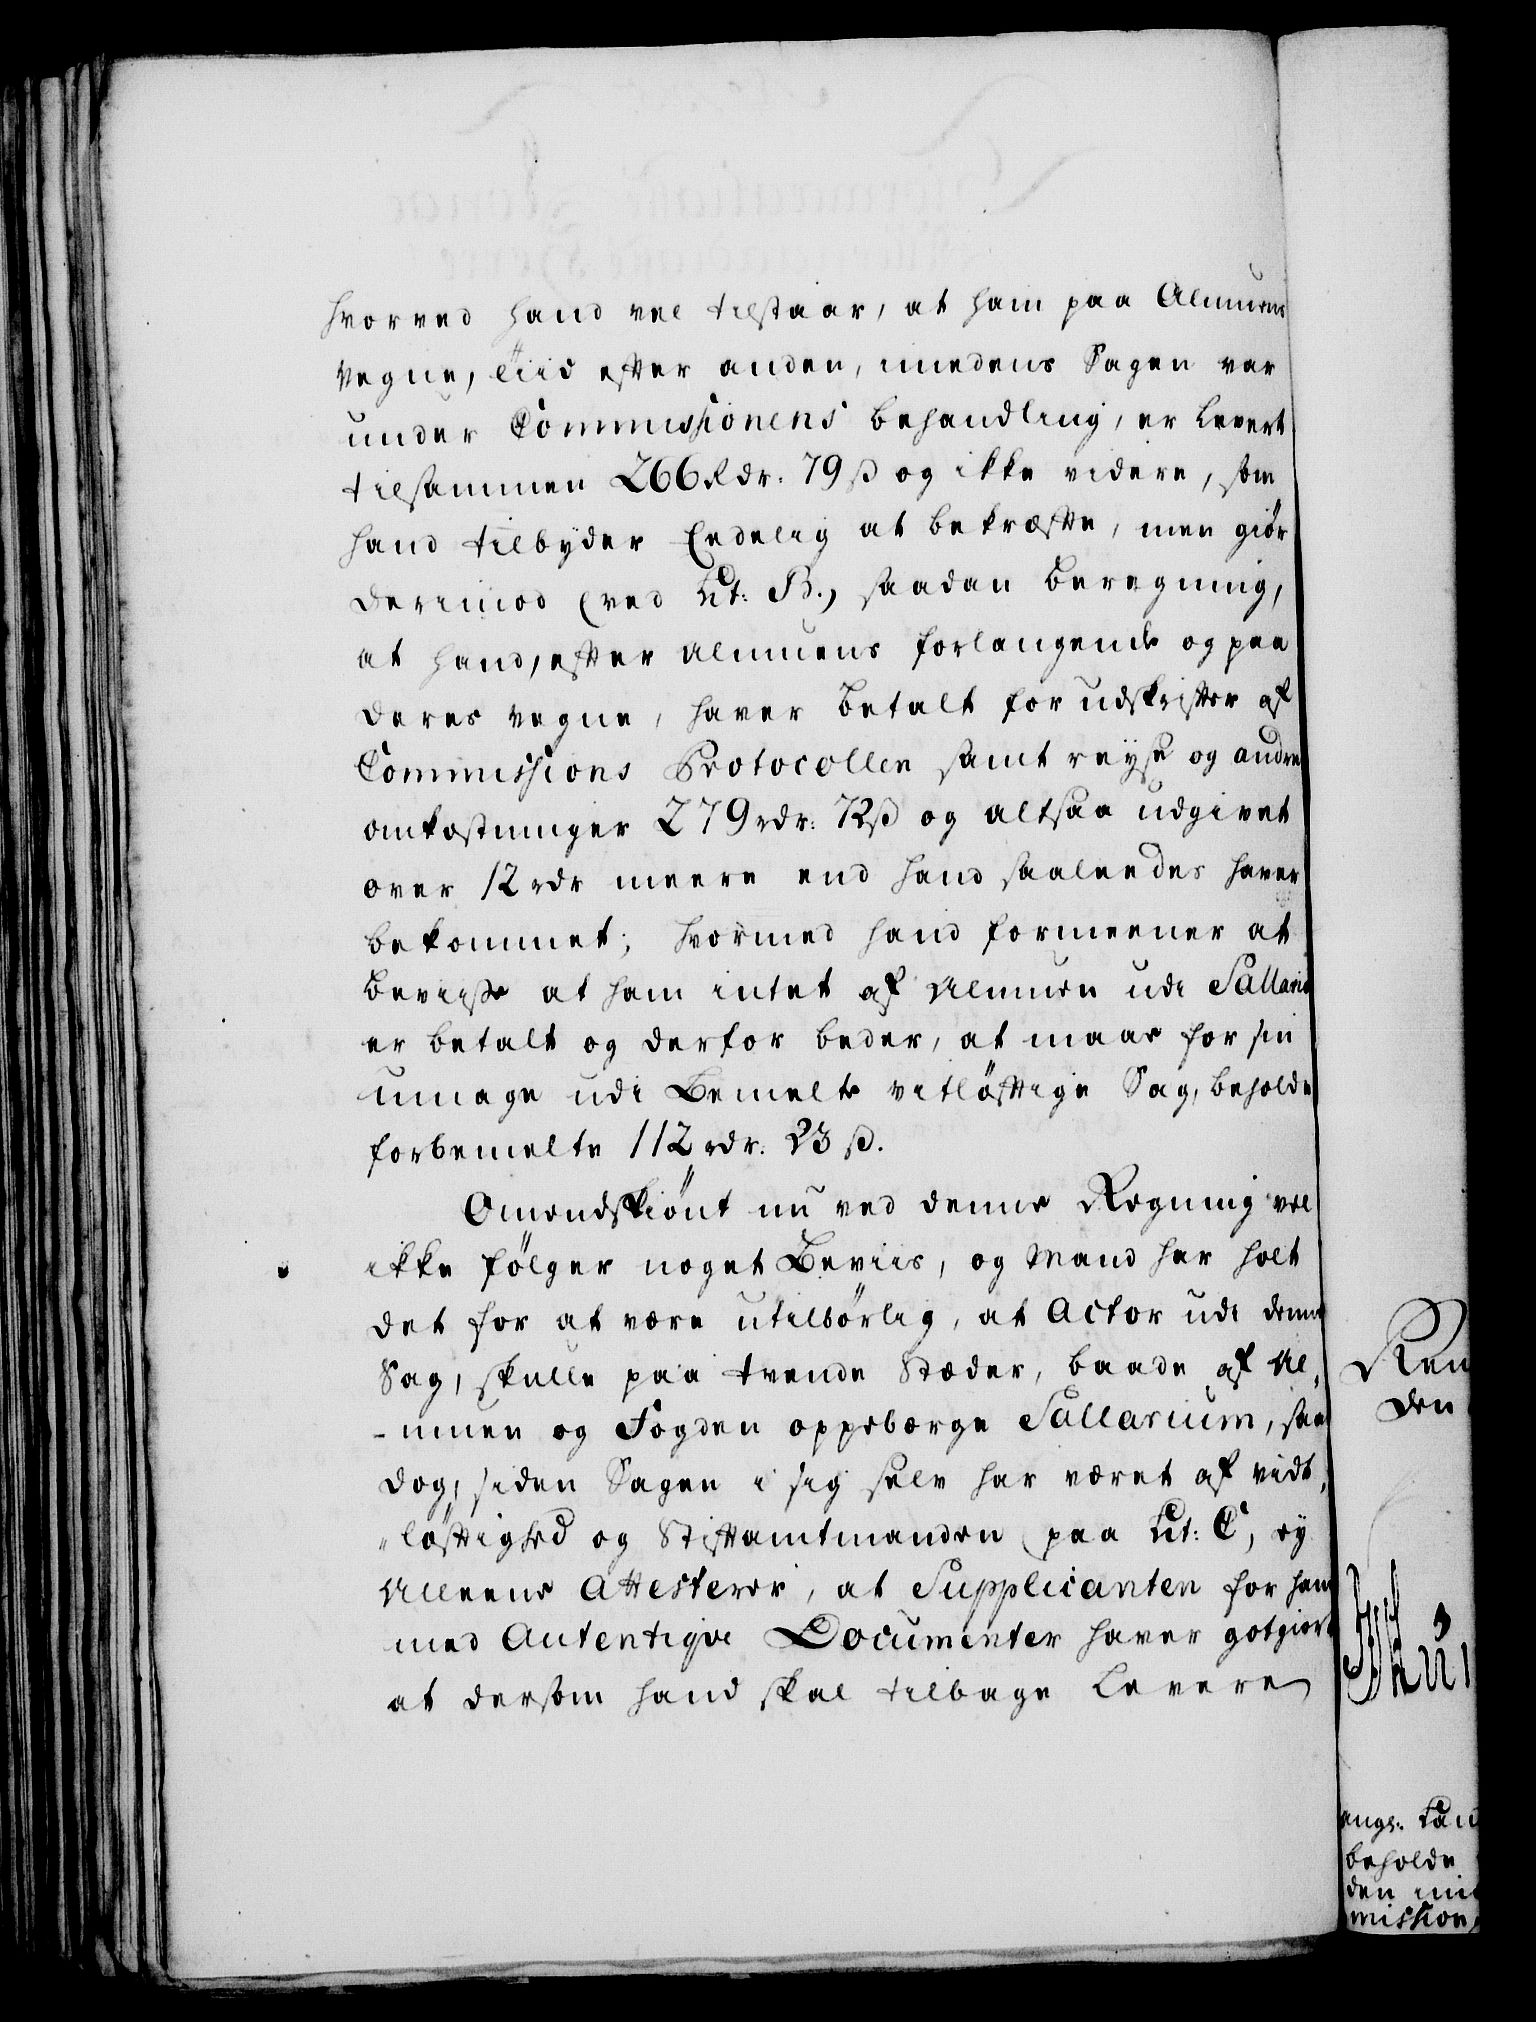 hvorved hand vel tilstaar, at ham paa Almuens
Vegne, Tiid efter anden, imedens Sagen var
under Commissionens behandling, er levert
tilsammen 266 Rdr. 79 ß og ikke videre, som
hand tilbyder Eedelig at bekræfte, men giør
derimod (ved Lit: B.) saadan beregning,
at hand, efter Almuens forlangende og paa
deres vegne, haver betalt for udskrifter af
Commissions Protocollen samt reyse og andre
omkostninger 279 rdr: 72 ß og altsaa udgivet
over 12 rdr meere end hand saaleedes haver
bekommet; hvormed hand formeener at
beviiße at ham intet af Almuen udi Sallario
er betalt og derfor beder, at maae for sin
umage udi Bemelte vitløftige Sag, beholde
forbemelte 112 rdr. 23 ß.
Omendskiønt nu ved denne Regning vel
ikke følger noget Beviis, og Mand har holt
det for at være utilbørlig, at Actor udi denne
Sag, skulle paa tvende Stæder, baade af Al-
-muen og Fogden oppebærge Sallarium, saa
dog, siden Sagen i sig selv har været af vidt,
„løftighed og Stiftamtmanden paa Lit: C, ey
Alleene Attesterer, at Supplicanten for ham
med Autentiqve Documenter haver gotgiort
at dersom hand skal tilbage levere
Ren
den
angl. Lau
beholde
den
mission